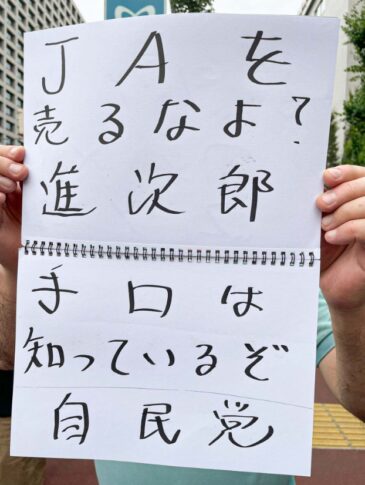 JAを
売るなよ?
進次郎
手口は
知っているぞ
自民党